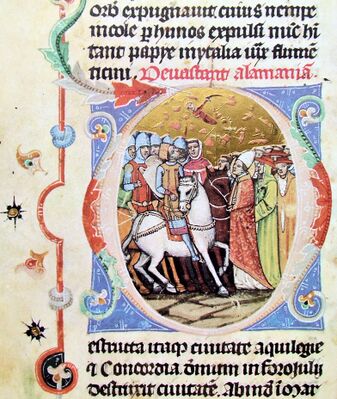 orb̄ expugnauit cuius nempe
incole ꝑ hunnos expulsi nūc hi
tant papye in ytalia ubi flumē
ticini. Deuastant alamaniā.
Destructa itaqꝫ ciuitate aquilegie
& Concordia in foroiulij
destruxit ciuitatē. Abinde ī Mar